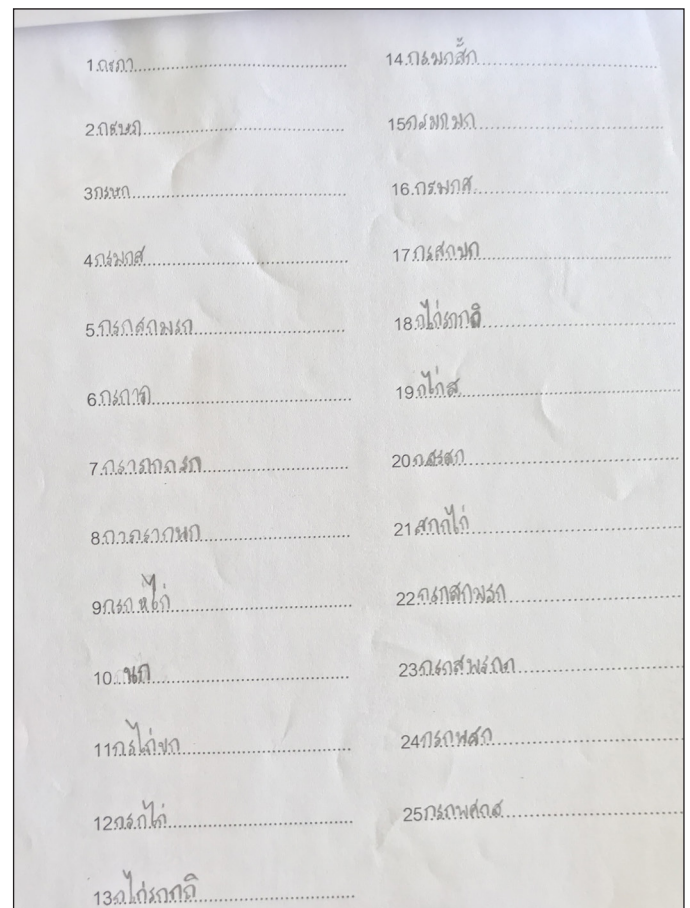 1.กรภา
2.กรษก
3กรหก
4กรมกส
5.กรกสกมรก
6.กรกาก
7.กรากกกรก
8.กากรากหก
9กรก.ห์ไก่
10.นก
11กรไก่ขก
12กรกไก่
13กไก่รกกถิ
14.กรมกสั๊ก
15กรมกมก
16.กรพกศ
17กรสกปก
18.กไก่รกกถิ
19.กไก่ส
20กสรสก
21สกกไก่
22.กรกศกมรก
23กรกสพรกก
24กรกหสก
25กรกพศกส